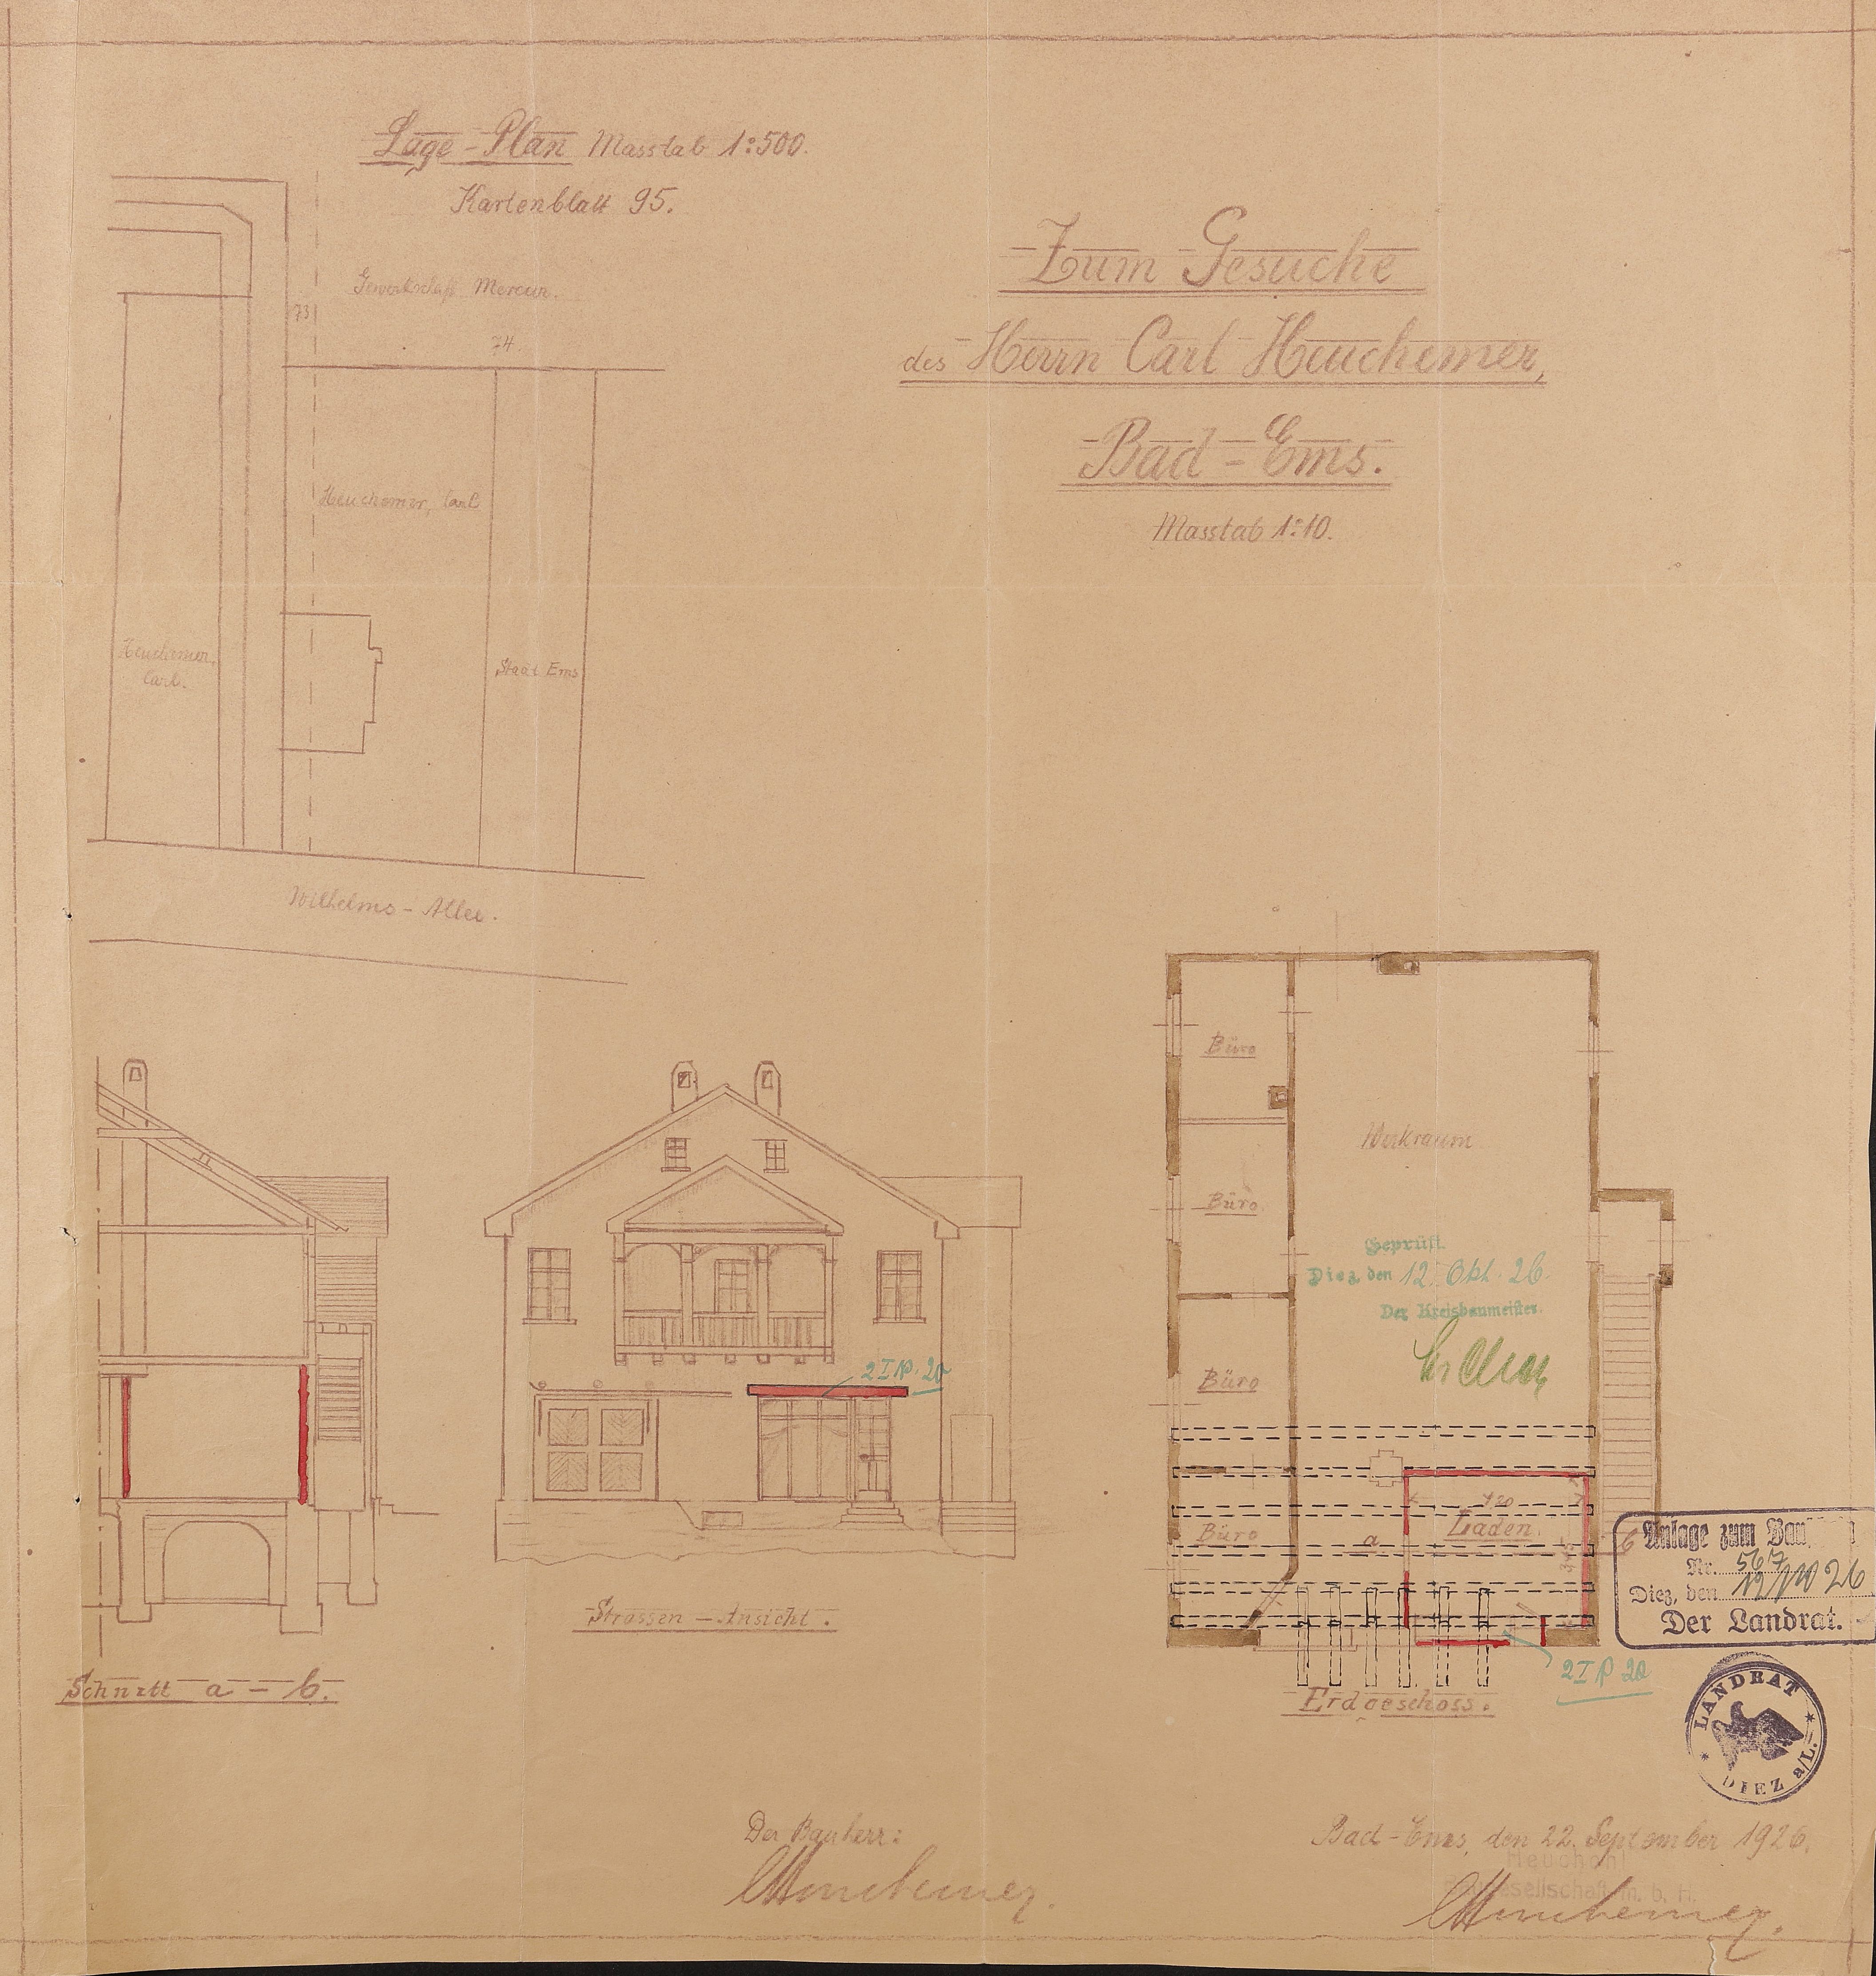 Lage-Plan Masstab 1:500.
Kartenblatt 95.
Gewerkschaft Mercur.
73
74.
Heuchemer, Carl
Heuchemer,
Carl.
Stadt Ems
Wilhelms-Allee.
Zum Gesuche
des Herrn Carl Heuchemer,
Bad-Ems.
Masstab 1:10.
Schnitt a-b.
2 I P. 20
Strassen-Ansicht.
Büro
Büro
Büro
Büro
Werkraum
Geprüft
Diez, den 12. Okt. 26.
Der Kreisbaumeister.
Laden
a
2 I P 20
Erdgeschoss.
Anlage zum
Nr. 567
Diez, den 12/10 26
Der Landrat.
LANDRAT
DIEZ a/L.
Der Bauherr:
CHeuchemer.
Bad-Ems, den 22. September 1926.
gesellschaft m. b. H.
CHeuchemer.